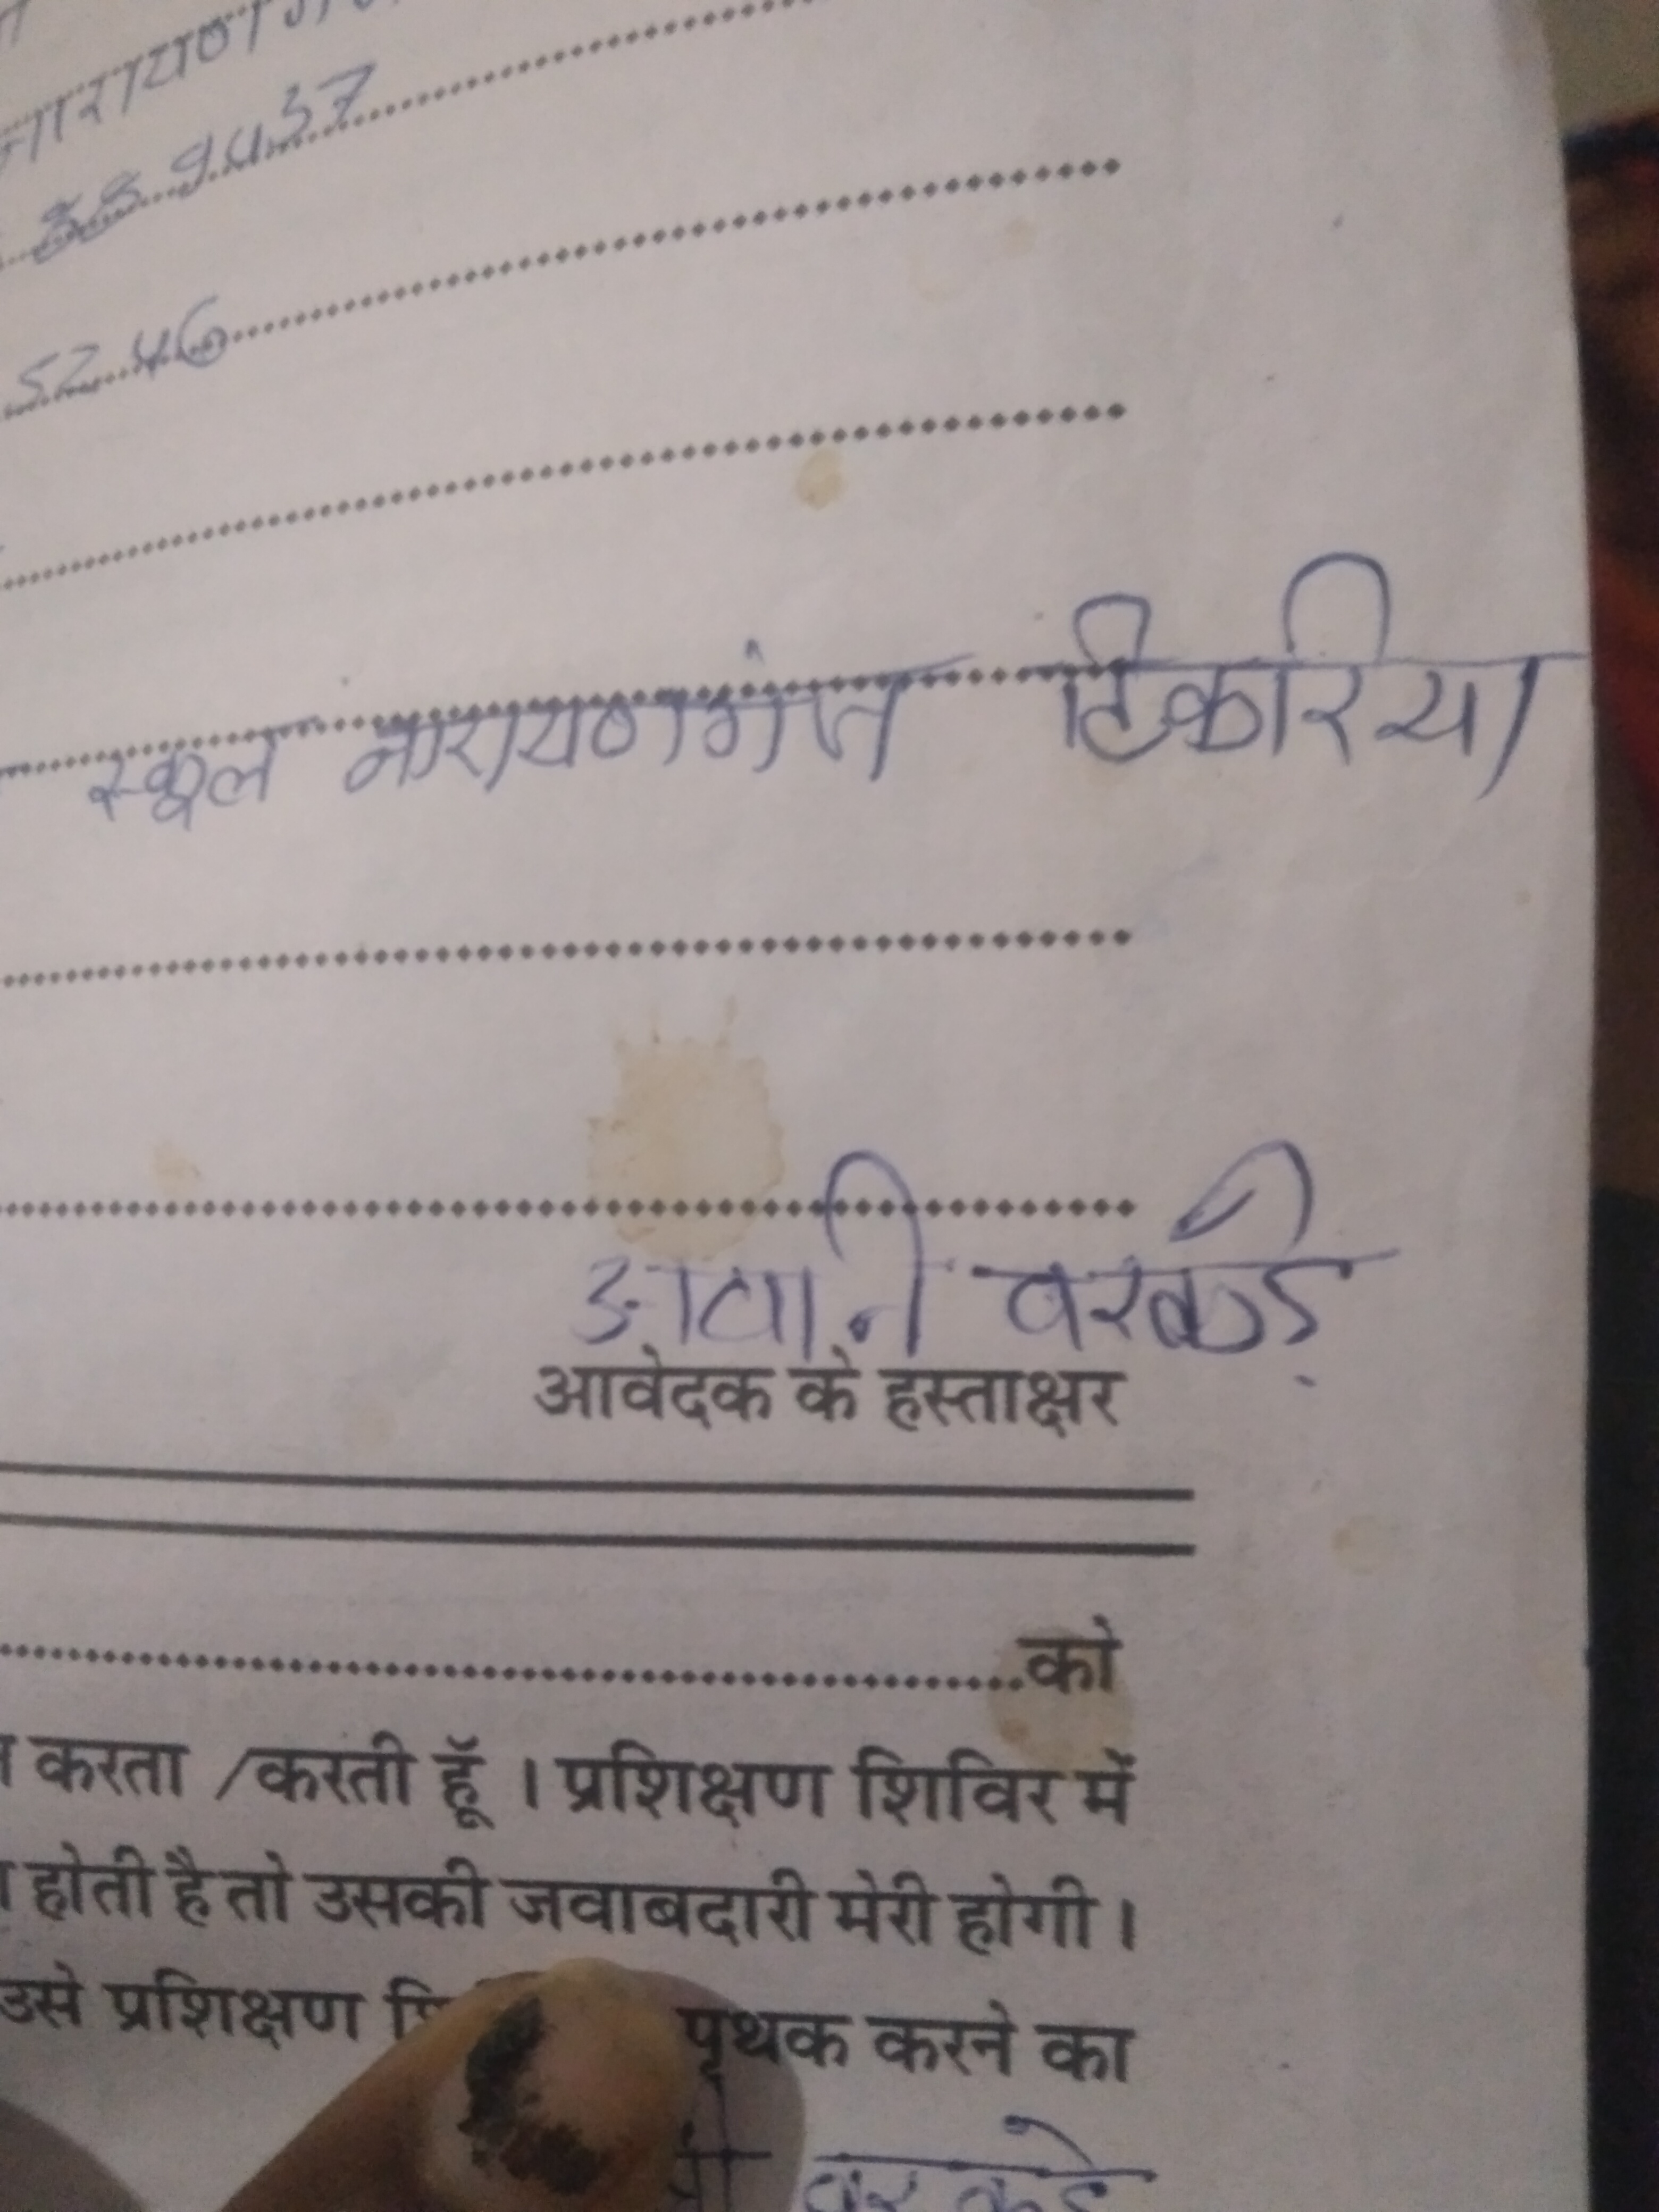 नारायणगं
38 9437
52 46
स्कूल नारायणगंज टिकरिया
अवानि वरकड़े
आवेदक के हस्ताक्षर
को
करता /करती हूँ । प्रशिक्षण शिविर में
होती है तो उसकी जवाबदारी मेरी होगी ।
उसे प्रशिक्षण पृथक करने का
वरकड़े